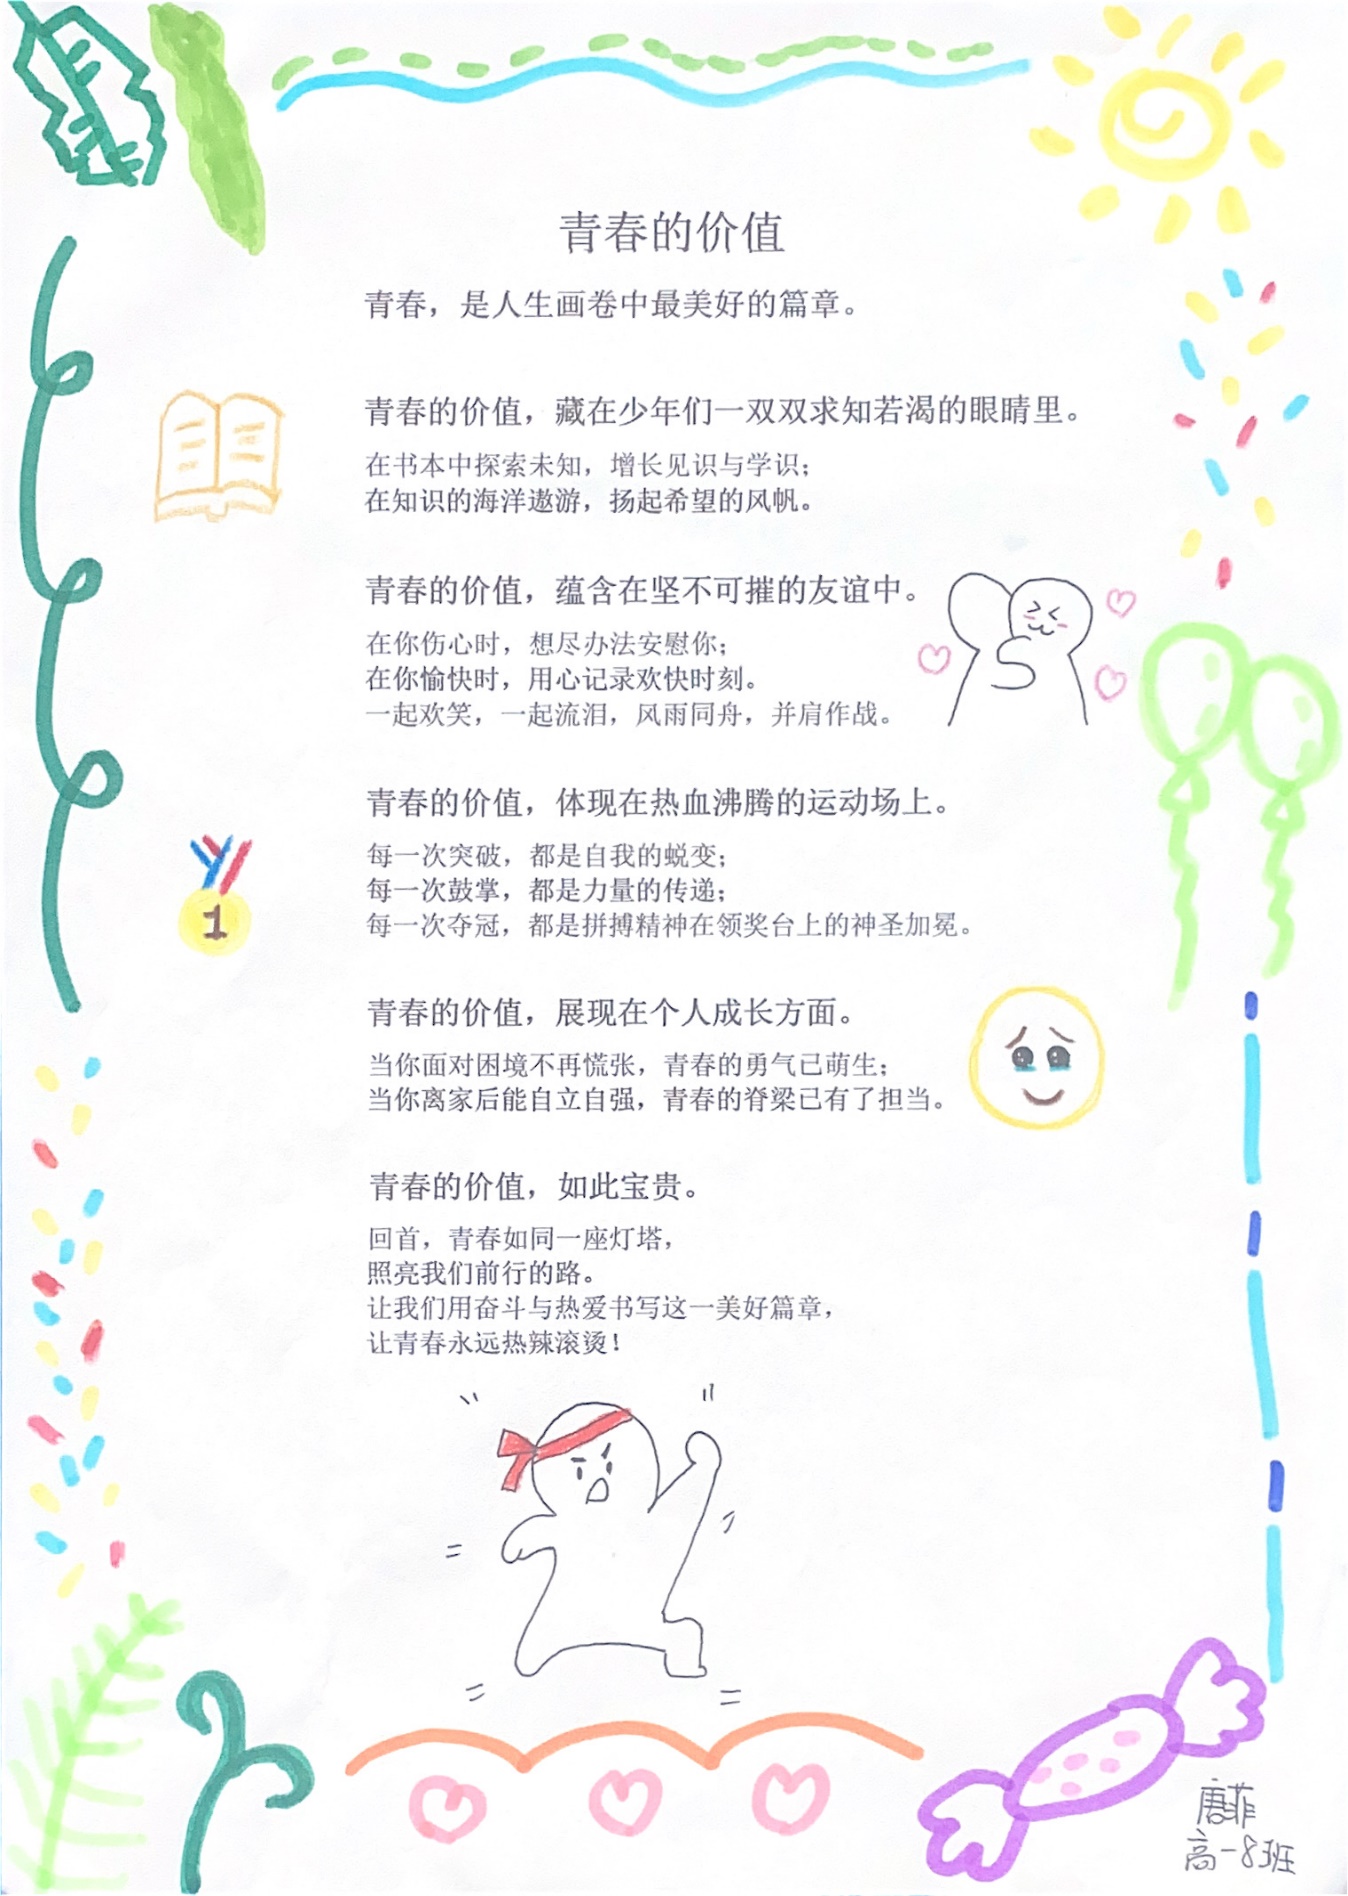 青春的价值
青春，是人生画卷中最美好的篇章。
青春的价值，藏在少年们一双双求知若渴的眼睛里。
在书本中探索未知，增长见识与学识；
在知识的海洋遨游，扬起希望的风帆。
青春的价值，蕴含在坚不可摧的友谊中。
在你伤心时，想尽办法安慰你；
在你愉快时，用心记录欢快时刻。
一起欢笑，一起流泪，风雨同舟，并肩作战。
青春的价值，体现在热血沸腾的运动场上。
每一次突破，都是自我的蜕变；
每一次鼓掌，都是力量的传递；
每一次夺冠，都是拼搏精神在领奖台上的神圣加冕。
1
青春的价值，展现在个人成长方面。
当你面对困境不再慌张，青春的勇气已萌生；
当你离家后能自立自强，青春的脊梁已有了担当。
青春的价值，如此宝贵。
回首，青春如同一座灯塔，
照亮我们前行的路。
让我们用奋斗与热爱书写这一美好篇章，
让青春永远热辣滚烫！
唐菲
高一8班